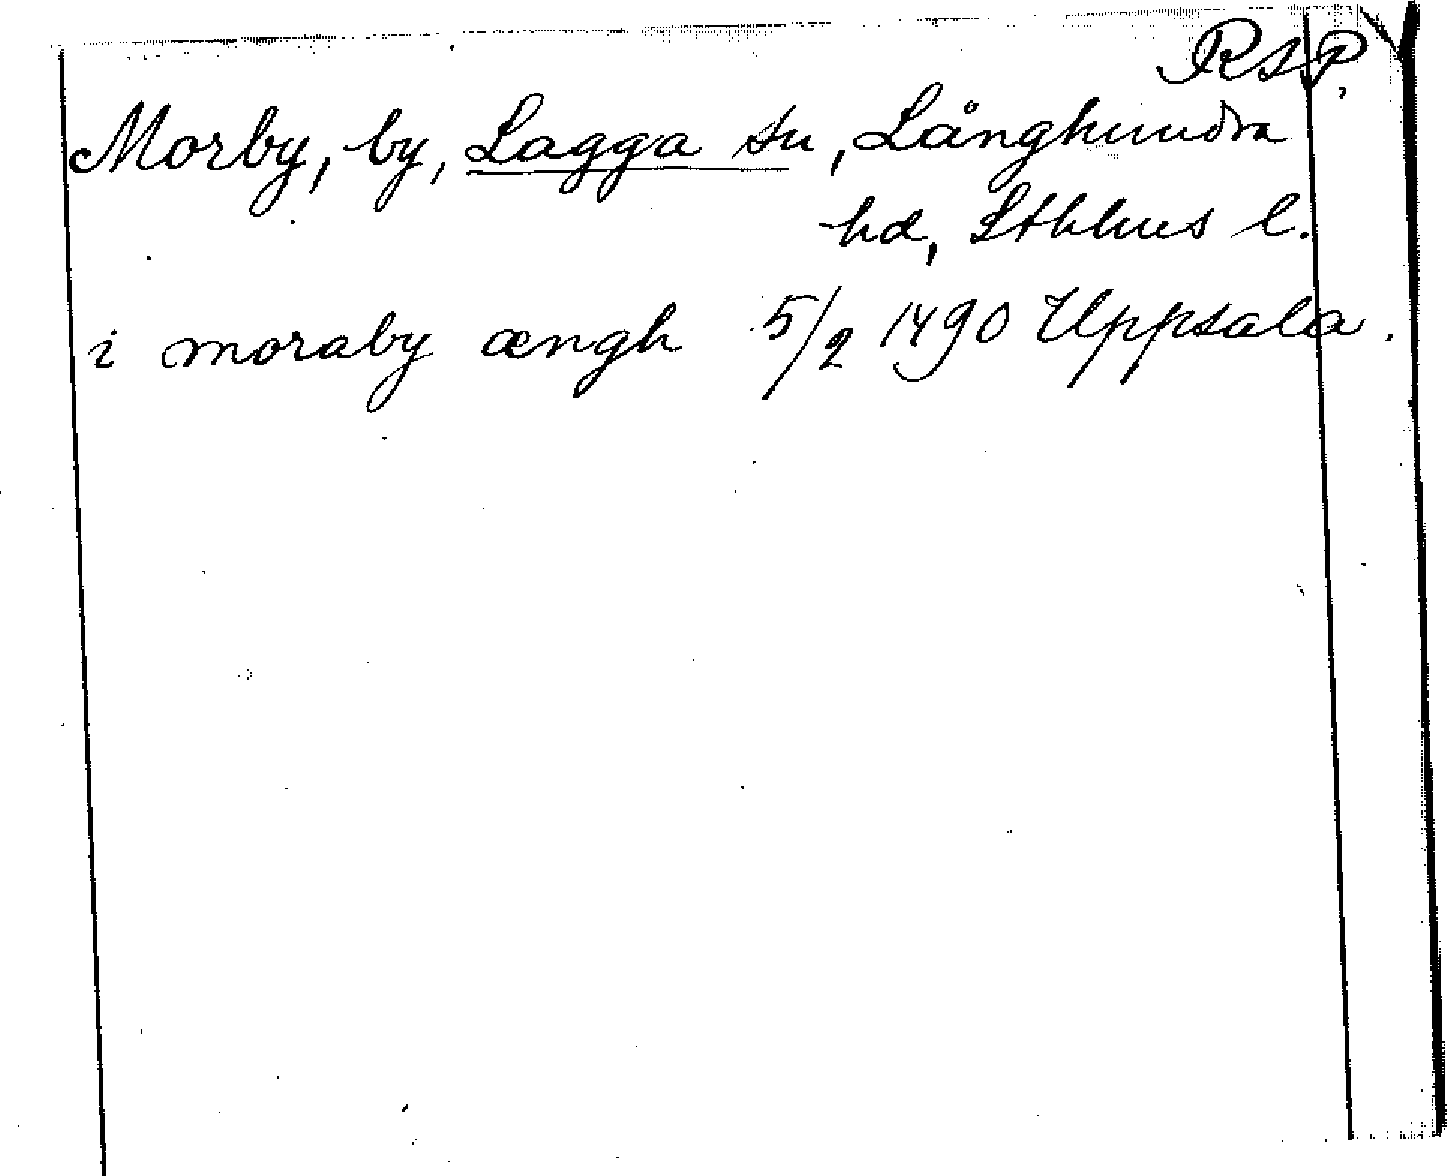 RAP
Morby, by, Lagga sn, Långhundra
hd, Sthlms l.
i moraby ængh 5/2 1490 Uppsala.